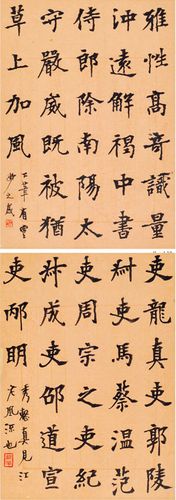 雅性高奇識量
沖遠解褐中書
侍郎除南陽太
守嚴威既被猶
草上加風
下筆有
吏龍真吏郭陵
吏馬蔡温范
吏周宗之吏紀
成吏邵道宣
吏邴明
秀整真見江
左風流也